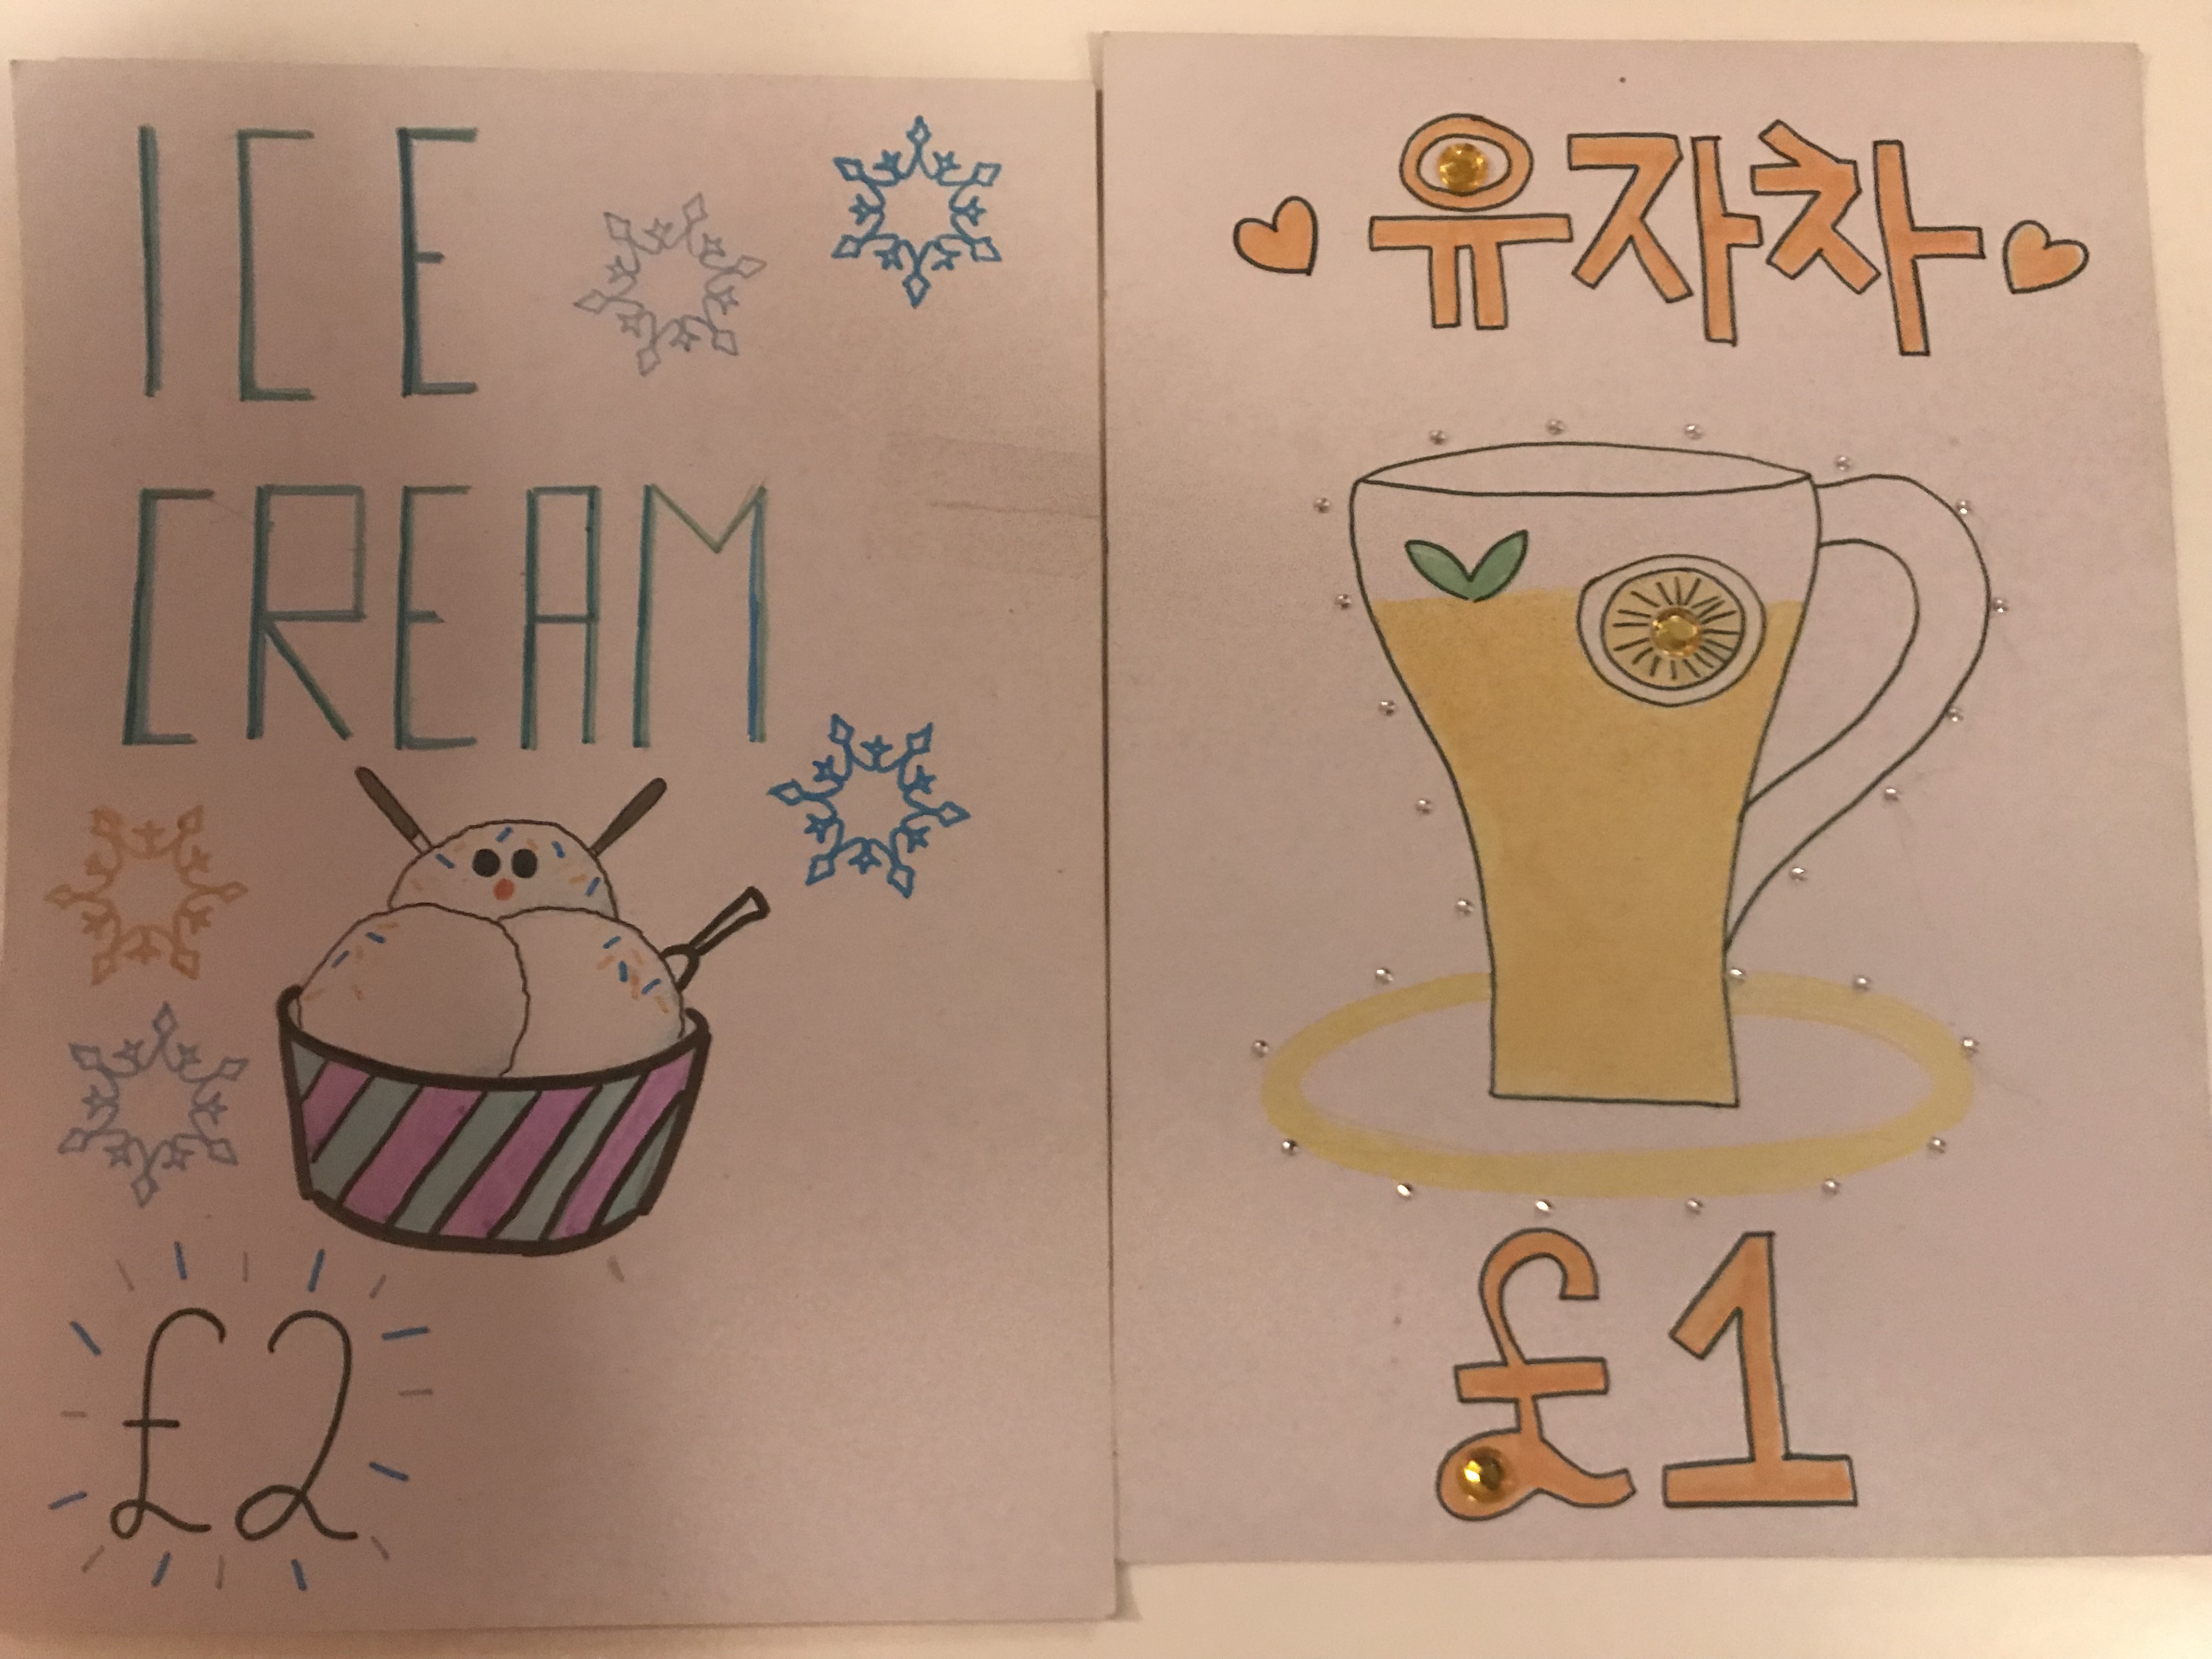 ICE
CREAM
£2
유자차
£1